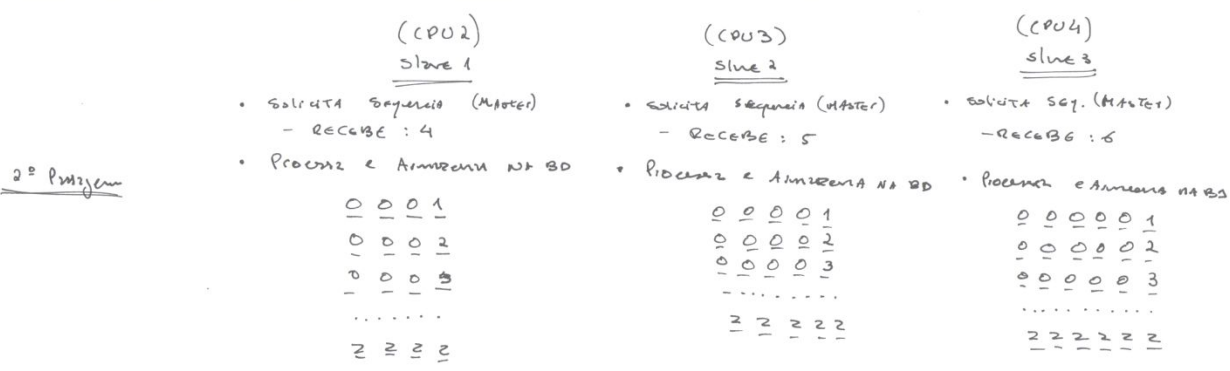 (CPU2)
Slave 1
• Solicita Sequencia (Master)
- RECEBE : 4
• Processa e Armazena NA BD
0 0 0 1
0 0 0 2
0 0 0 3
.......
Z Z Z Z
(CPU3)
Slave 2
• Solicita Sequencia (Master)
- RECEBE : 5
• Processa e Armazena NA BD
0 0 0 0 1
0 0 0 0 2
0 0 0 0 3
.........
Z Z Z Z Z
(CPU4)
Slave 3
• Solicita SEQ. (Master)
- RECEBE : 6
• Processa e Armazena NA BD
0 0 0 0 0 1
0 0 0 0 0 2
0 0 0 0 0 3
...........
Z Z Z Z Z Z
2º Passagem